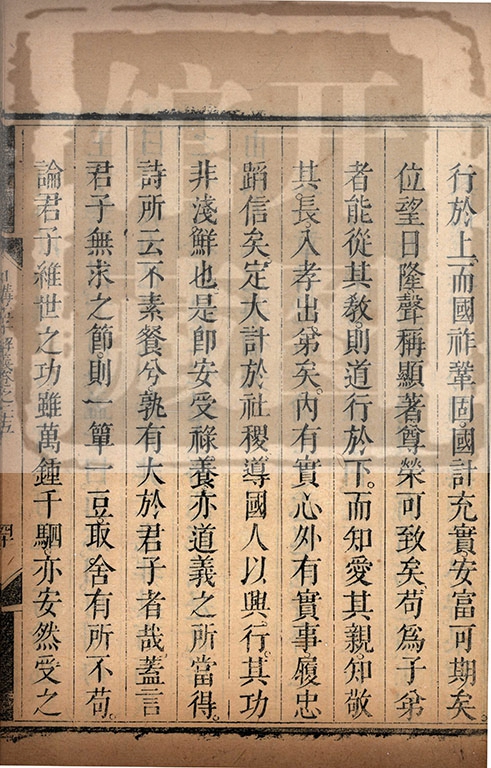 行於上而國祚鞏固國計充實安富可期矣
位望日隆聲稱顯著尊榮可致矣苟爲子弟
者能從其敎則道行於下而知愛其親知敬
其長入孝出弟矣內有實心外有實事履忠
蹈信矣定大計於社稷導國人以興行其功
非淺鮮也是卽安受祿養亦道義之所當得
詩所云不素餐兮孰有大於君子者哉蓋言
君子無求之節則一簞一豆取舍有所不苟
論君子維世之功雖萬鍾千駟亦安然受之